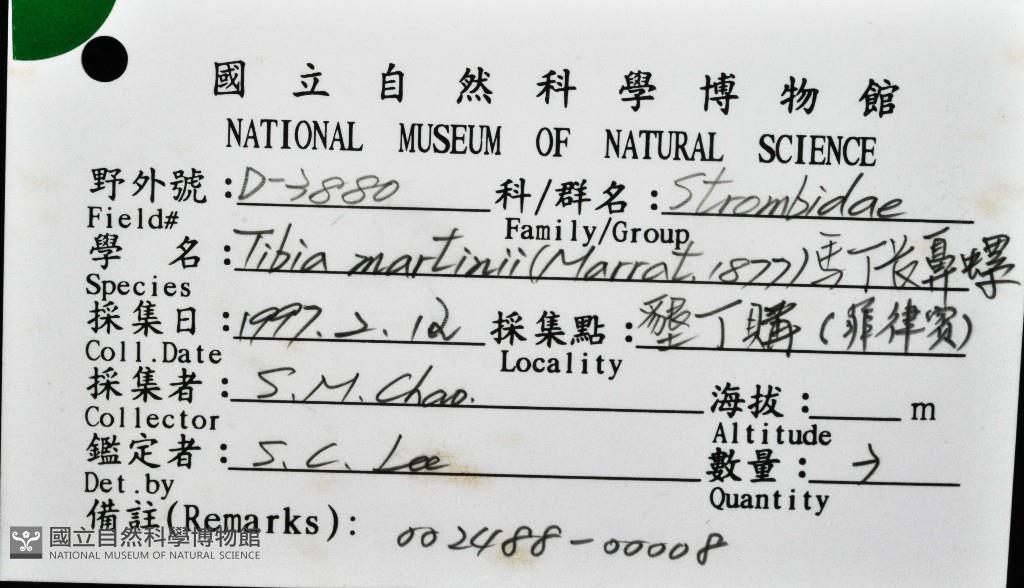 國立自然科學博物館
NATIONAL MUSEUM OF NATURAL SCIENCE
野外號:D-3880 科/群名:Strombidae
Field# Family/Group
學 名:Tibia martinii (Marrat, 1877) 馬丁長鼻螺
Species
採集日:1997.2.12 採集點:墾丁購(菲律賓)
Coll.Date Locality
採集者:S.M.Chao. 海拔: m
Collector Altitude
鑑定者:S.C. Lee 數量:
Det.by Quantity
備註(Remarks): 002488-00008
國立自然科學博物館
NATIONAL MUSEUM OF NATURAL SCIENCE